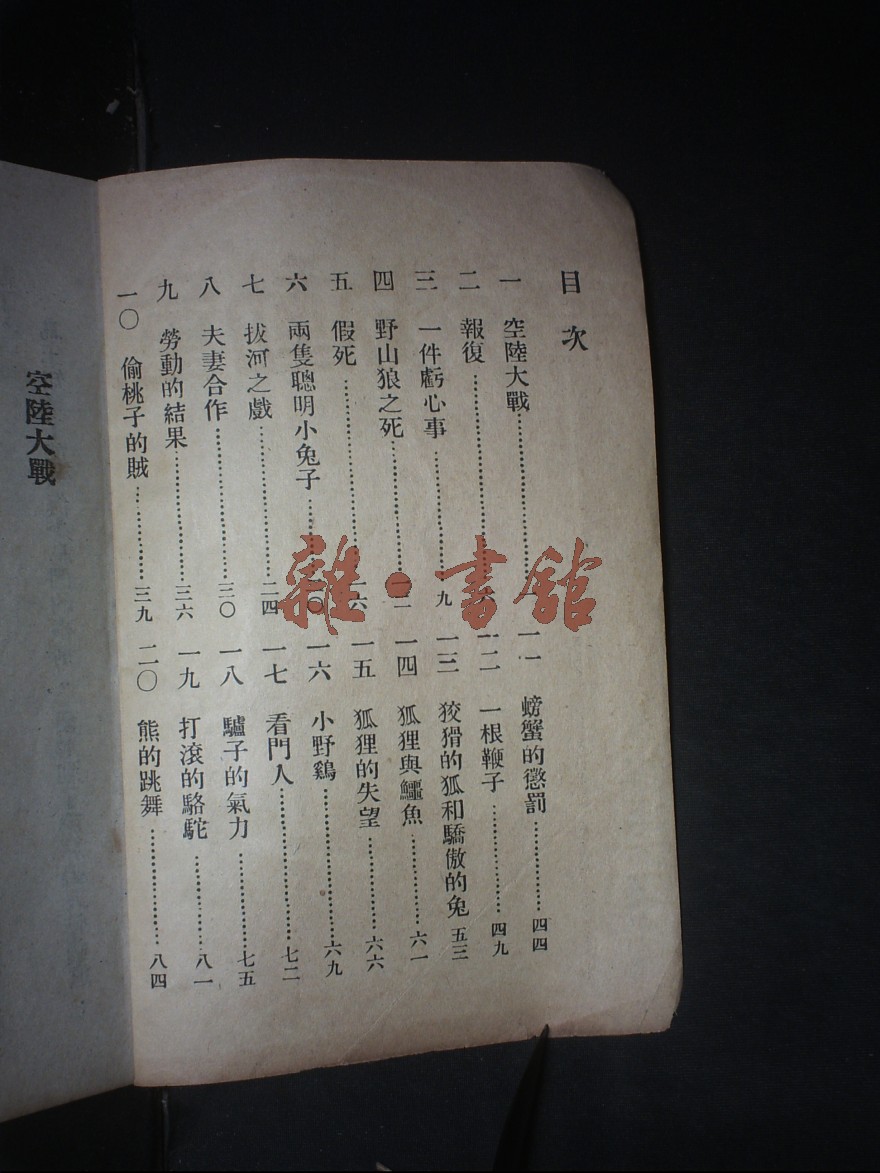 目次
一 空陸大戰
二 報復
三 一件虧心事 九
四 野山狼之死
五 假死
六 兩隻聰明小兔子
七 拔河之戲 二四
八 夫妻合作 三〇
九 勞動的結果 三六
一〇 偷桃子的賊 三九
一一 螃蟹的懲罰 四四
一二 一根鞭子 四九
一三 狡猾的狐和驕傲的兔 五三
一四 狐狸與鱷魚 六一
一五 狐狸的失望 六六
一六 小野鷄 六九
一七 看門人 七二
一八 驢子的氣力 七五
一九 打滾的駱駝 八一
二〇 熊的跳舞 八四
空陸大戰
雜·書館